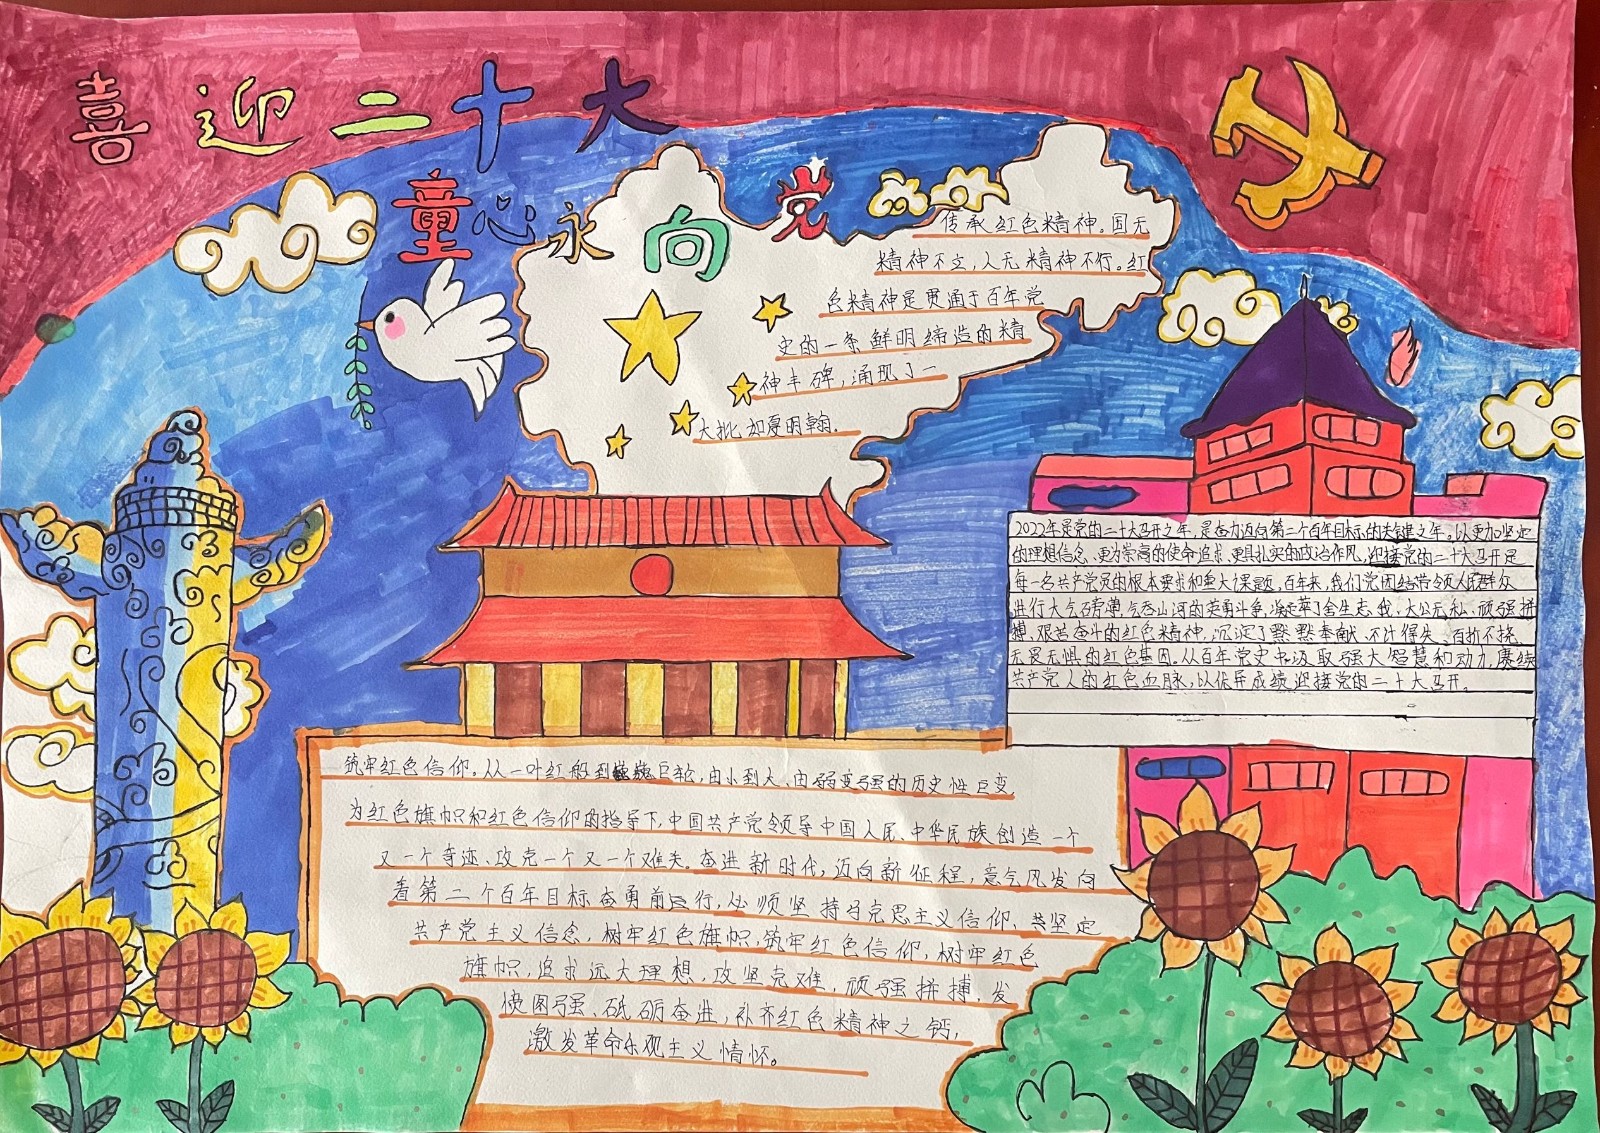 喜迎二十大
童心永向党
传承红色精神。国无
精神不立，人无精神不行。红
色精神是贯通于百年党
史的一条鲜明缔造的精
神丰碑，涌现了一
大批如夏明翰.
2022年是党的二十大召开之年，是奋力迈向第二个百年目标的关键之年。以更加坚定
的理想信念、更为崇高的使命追求、更具扎实的政治作风，迎接党的二十大召开是
每一名共产党员的根本要求和重大课题，百年来，我们党团结带领人民群众
进行大气磅礴，气吞山河的英勇斗争，凝定萃了舍生忘我、大公无私、顽强拼
搏、艰苦奋斗的红色精神，沉淀了默默奉献、不计得失、百折不挠、
无畏无惧的红色基因。从百年党史中汲取强大智慧和动力，赓续
共产党人的红色血脉，以优异成绩迎接党的二十大召开。
筑牢红色信仰。从一叶红船到巍巍巨轮，由小到大、由弱变强的历史性巨变，
为红色旗帜和红色信仰的指导下，中国共产党领导中国人民、中华民族创造一个
又一个奇迹、攻克一个又一个难关。奋进新时代，迈向新征程，意气风发向
着第二个百年目标奋勇前行，必须坚持马克思主义信仰、共坚定
共产党主义信念，树牢红色旗帜，筑牢红色信仰，树牢红色
旗帜，追求远大理想，攻坚克难，顽强拼搏，发
使图强、砥砺奋进，补齐红色精神之钙，
激发革命乐观主义情怀。